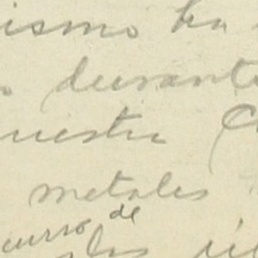 ismo ha
durante
nuestra C
metales
curso de
los